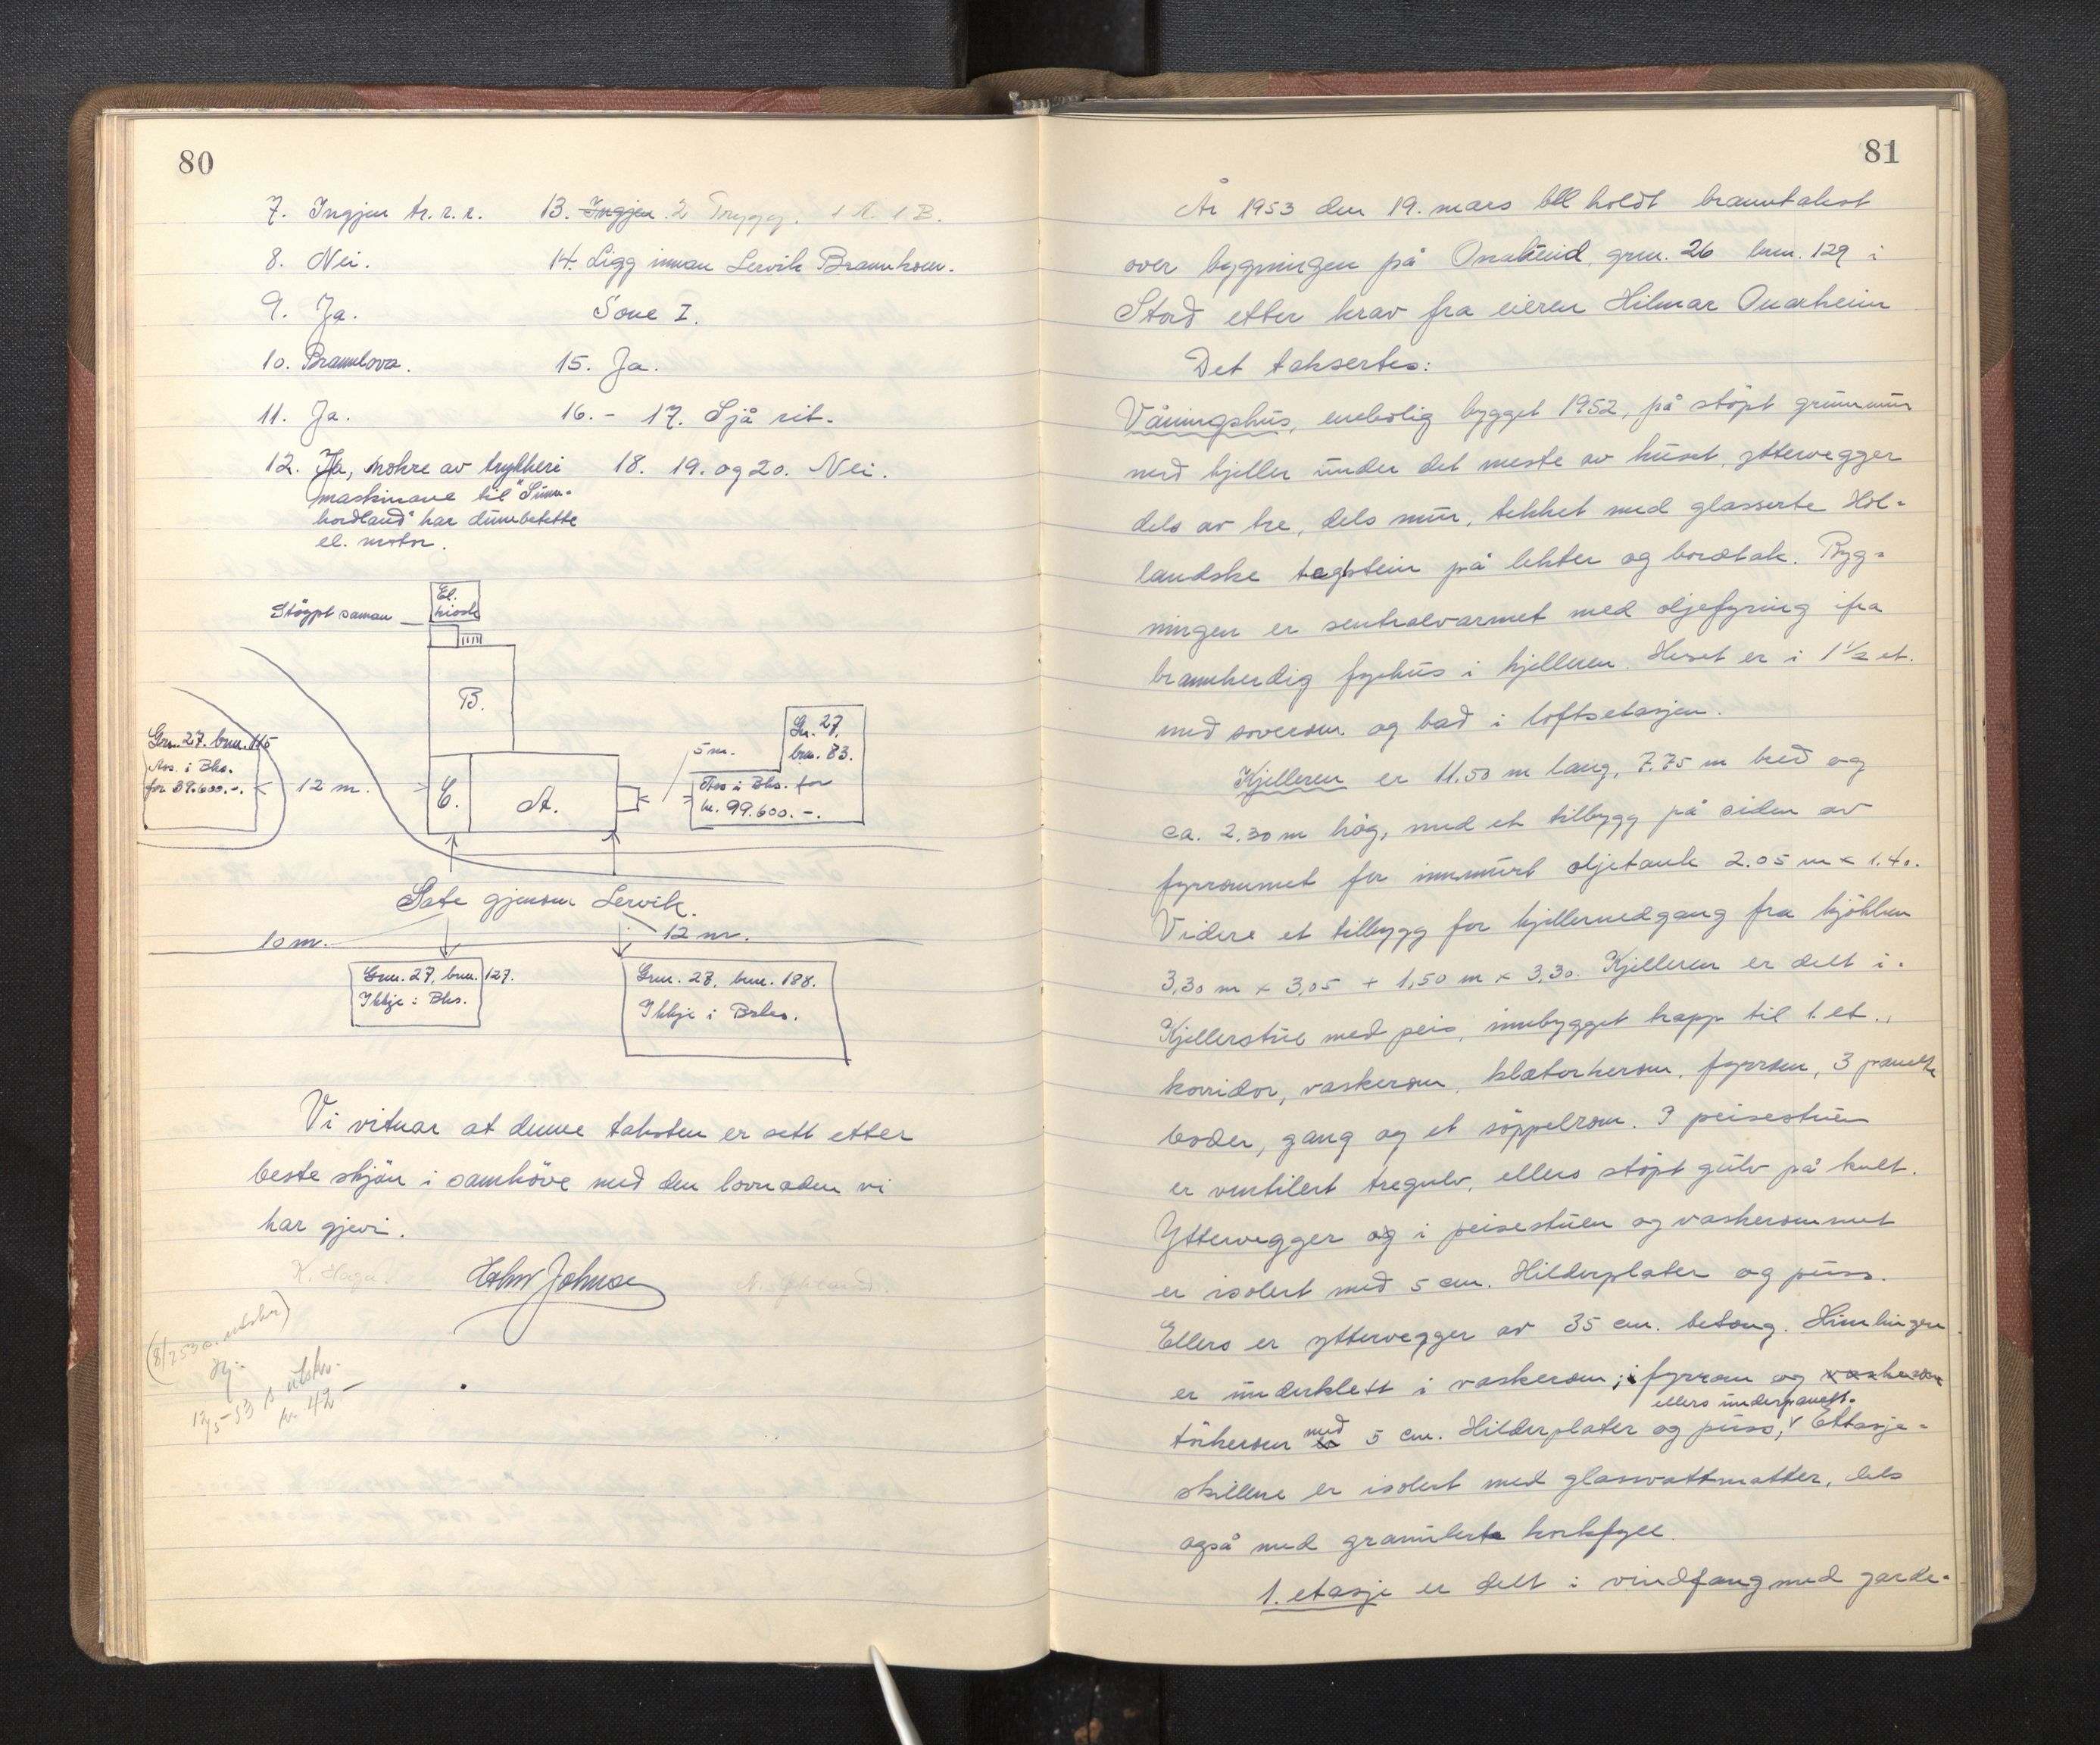 80
7. Ingjen tr. r. e. 13. Ingjen. 2 Trygg. 1 A. 1 B.
8. Nei. 14. Ligg innan Lervik Brannkom.
9. Ja. Sone I.
10. Brannlova. 15. Ja.
11. Ja. 16. - 17. Sjå rit.
12. Ja, nokre av trykkeri 18. 19. og 20. Nei.
maskinane til "Sunn-
hordland" har dúnnbetette
el. motor.
Støypt saman
El.
kiosk
B.
Grn. 27. bnr. 115
Ass. i Bks.
for 39.600.-.
12 m.
C.
A.
5 m.
Gn. 27,
bnr. 83.
Ass i Bks. for
kr. 99.600.-.
Gate gjenom Lervik.
10 m.
12 m.
Gnr. 27, bnr. 127.
Ikkje i Bks.
Gnr. 27, bnr. 188.
Ikkje i Brks.
Vi vitnar at denne taksten er sett etter
beste skjön i samhöve med den lovnaden vi
har gjevi.
K. Haga.
12/5-53 utskr.
kr. 42-
81
År 1953 den 19. mars ble holdt branntakst
over bygningen på grn. 26 bnr. 129 i
Stord etter krav fra eieren Hilmar Onarheim
Det taksertes:
Våningshus, enebolig bygget 1952, på stöpt grunnmur
med kjeller under det meste av huset, yttervegger
dels av tre, dels mur, tekket med glasserte Hol-
landske taksten på lekter og bordtak. Byg-
ningen er sentralvarmet med oljefyring ifra
brannherdig fyrhus i kjelleren. Huset er i 1 1/2 et.
med soverom og bad i loftsetasjen.
Kjelleren er 11.50 m lang, 7.75 m bred og
ca. 2.30 m høg, med et tilbygg på siden av
fyrrommet for innmurt oljetank 2.05 m x 1.40.
Videre et tilbygg for kjellernedgang fra kjökken
3,30 m x 3,05 + 1,50 m x 3,30. Kjelleren er delt i.
Kjellerstue med peis, innbygget trapp til 1. et.,
korridor, vaskerom, klætorkerom, fyrrom, 3 panelte
boder, gang og et söppelrom. I peisestuen
er ventilert tregulv, ellers stöpt gulv på kult.
Yttervegger og i peisestuen og vaskerommet
er isolert med 5 cm. Hilderplater og puss.
Ellers er yttervegger av 35 cm. betong. Himlingen
er underklett i vaskerom, i fyrrom og vaskerom
ellers underpanelt.
törkerom med 5 cm. Hilderplater og puss, v Ettasje-
skillene er isolert med glassvattmatter, dels
også med granulerte korkfyll.
1. etasje er delt i vindfang med garde-